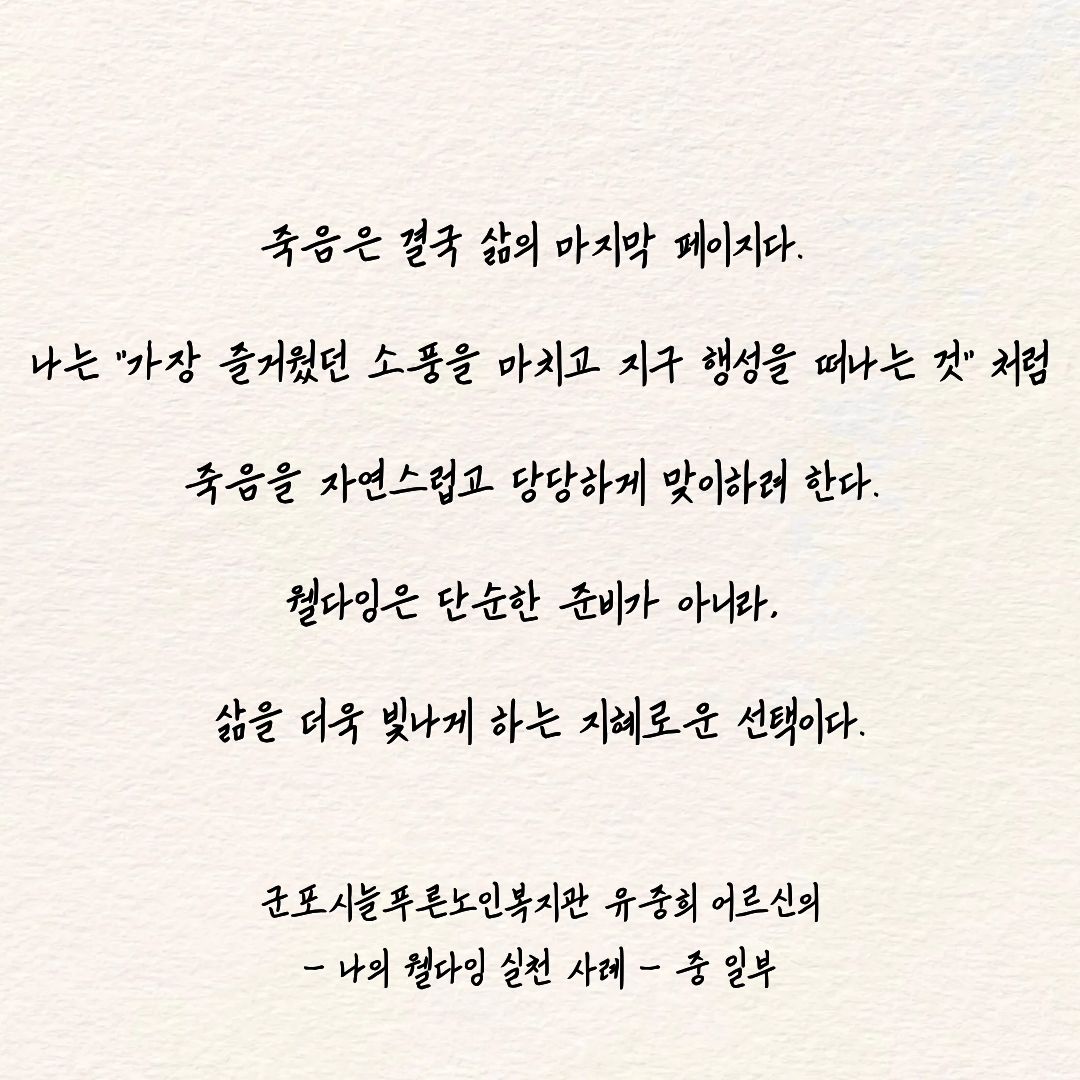 죽음은 결국 삶의 마지막 페이지다.
나는 "가장 즐거웠던 소풍을 마치고 지구 행성을 떠나는 것" 처럼
죽음을 자연스럽고 당당하게 맞이하려 한다.
웰다잉은 단순한 준비가 아니라,
삶을 더욱 빛나게 하는 지혜로운 선택이다.
군포시늘푸른노인복지관 유중희 어르신의
- 나의 웰다잉 실천 사례 - 중 일부